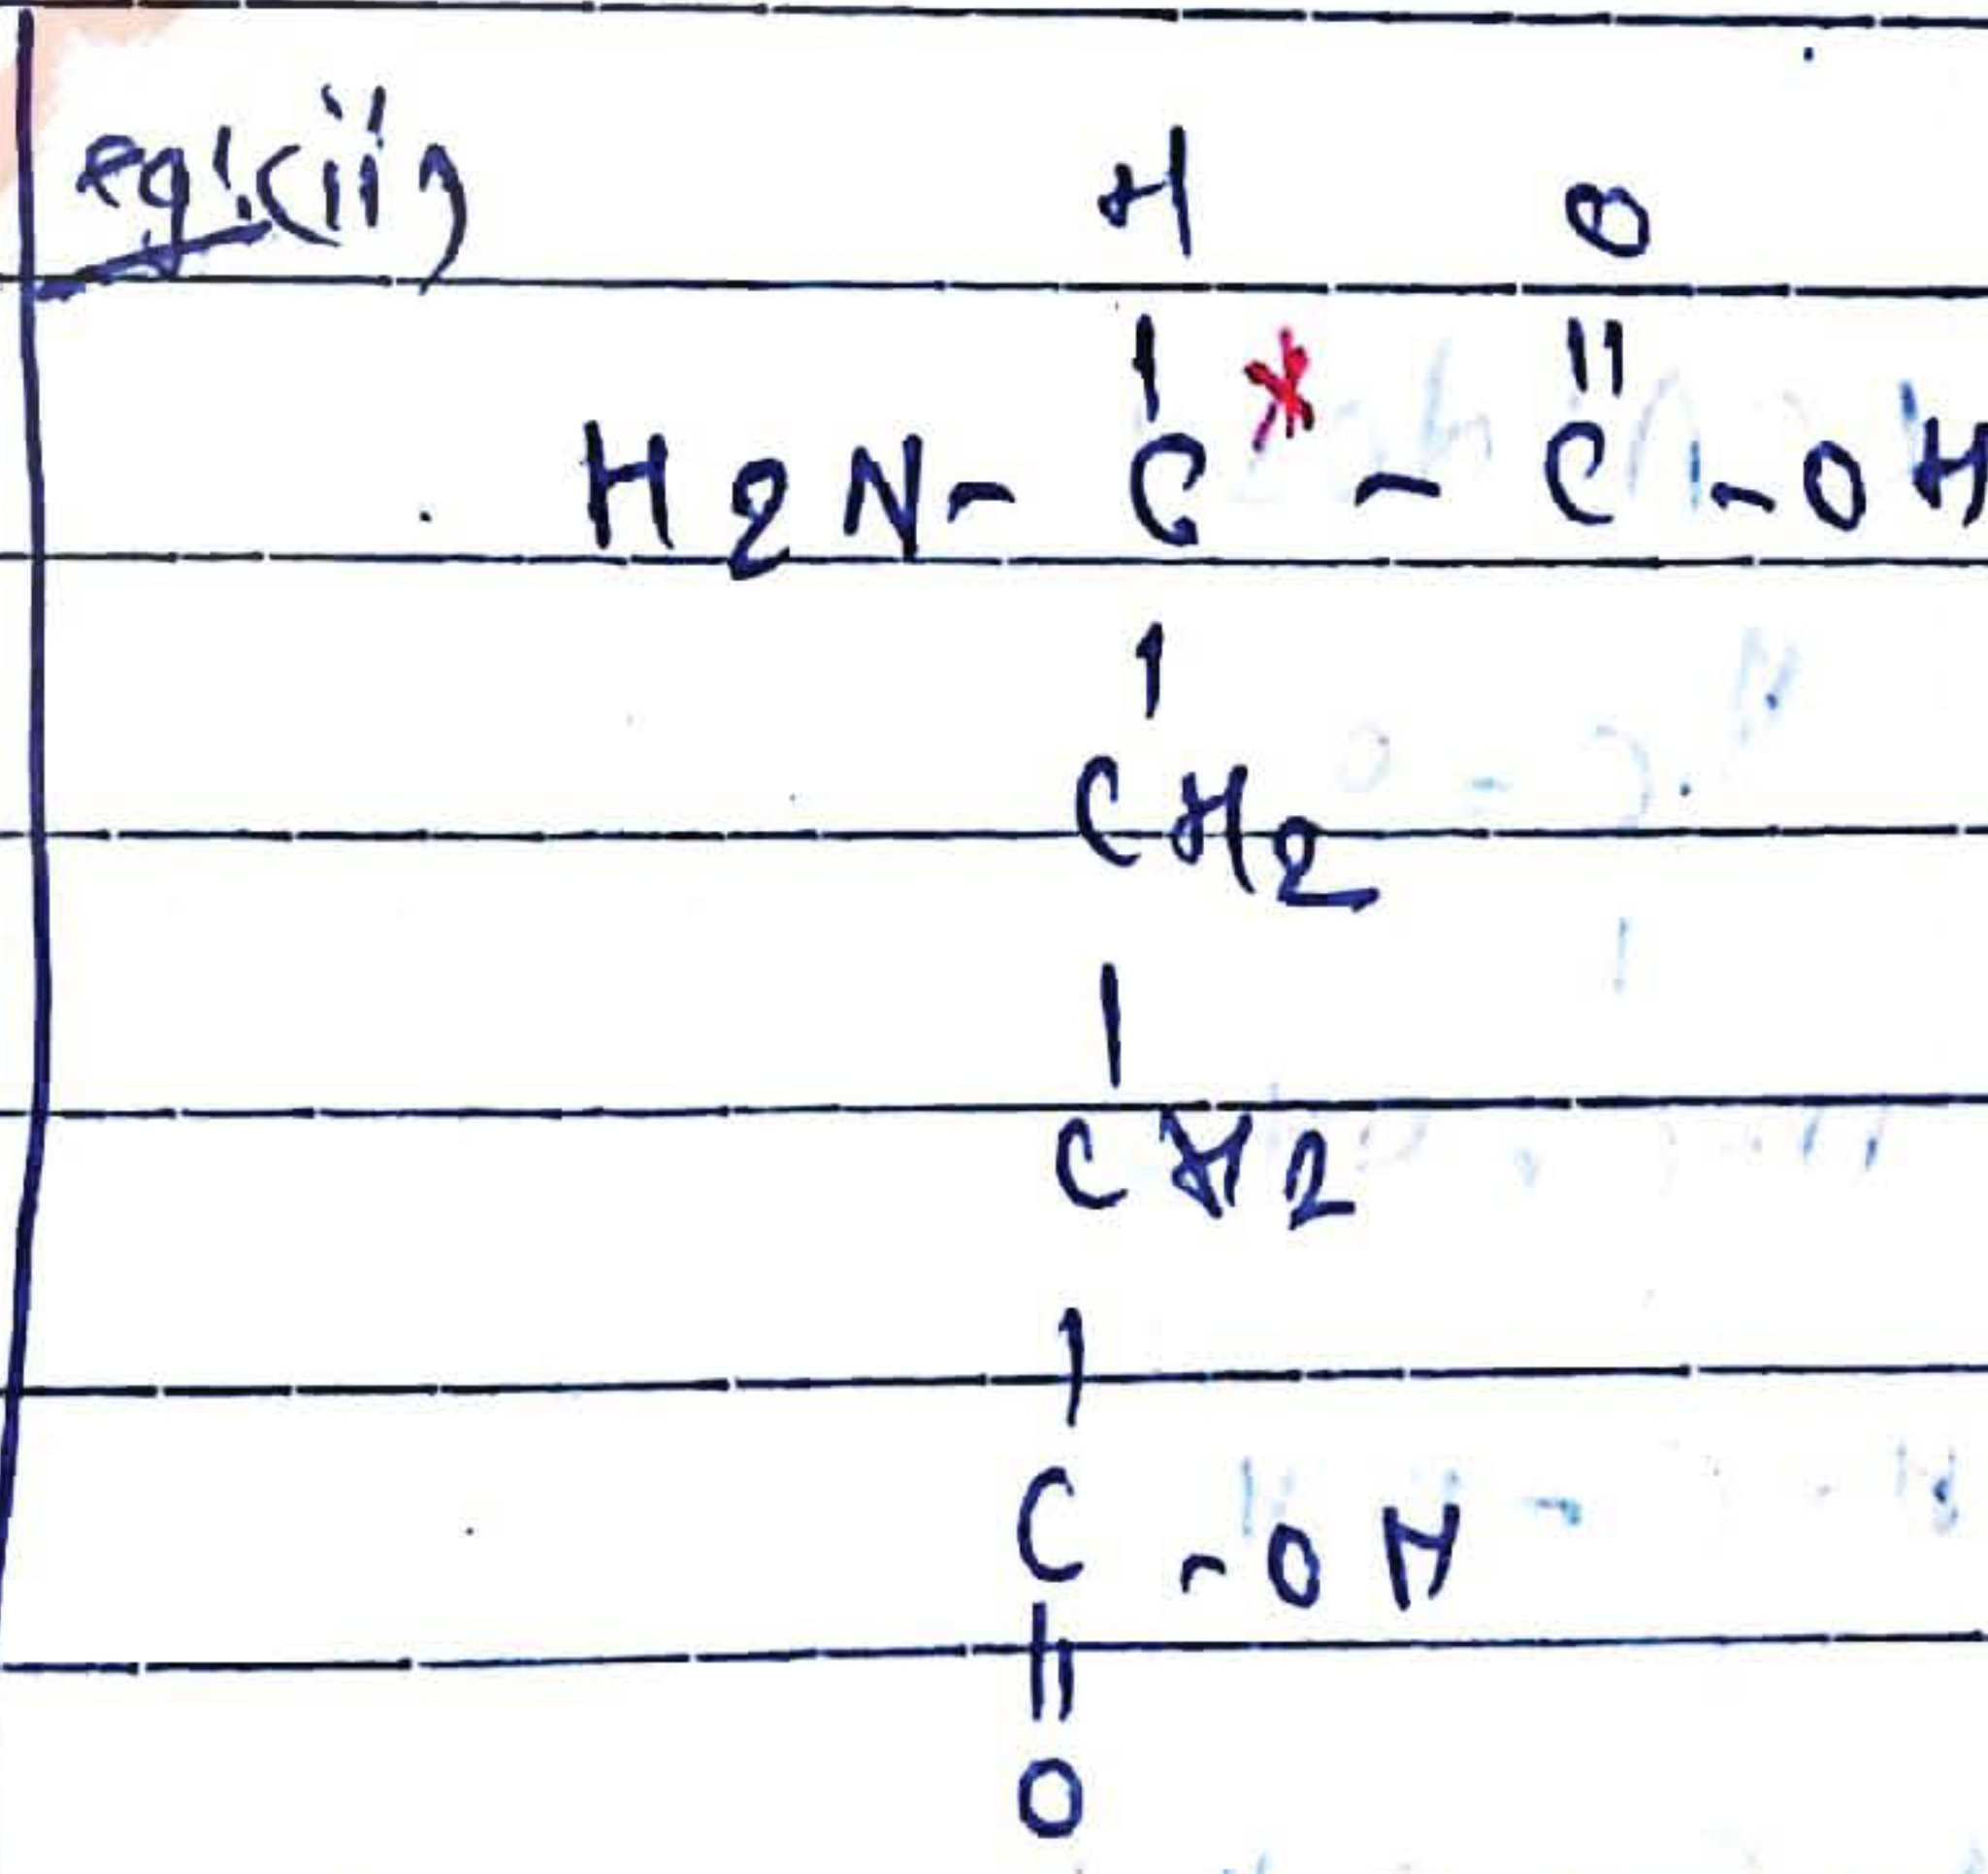 eg:(ii)
H O
| * ||
H2N - C - C - OH
|
CH2
|
CH2
|
C - OH
||
O